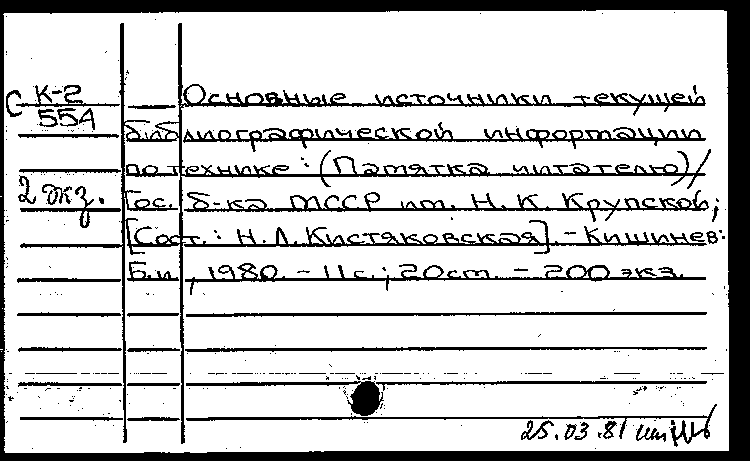 С К-2
554
Основные источники текущей
библиографической информации
по технике: (Памятка читателю)/
2 экз. Гос. б-ка МССР им. Н. К. Крупской;
[Сост.: Н. Л. Кистяковская]. – Кишинев:
Б.и., 1980. – 11 с.; 20 cm. – 200 экз.
25.03.81